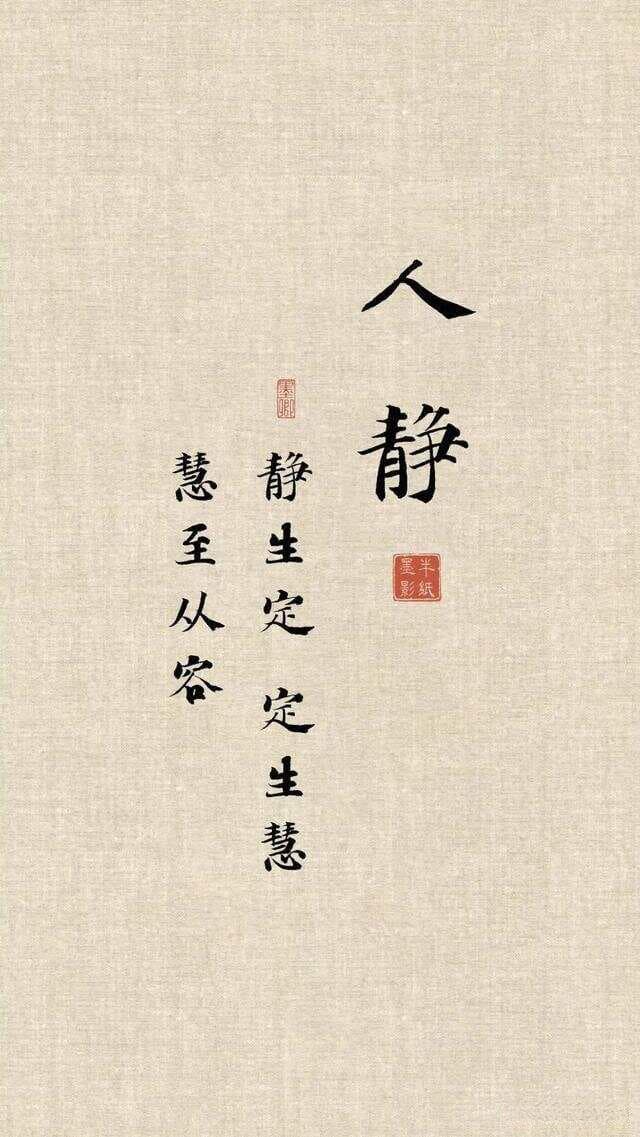 人静
半纸墨影
墨卿
静生定 定生慧
慧至从容